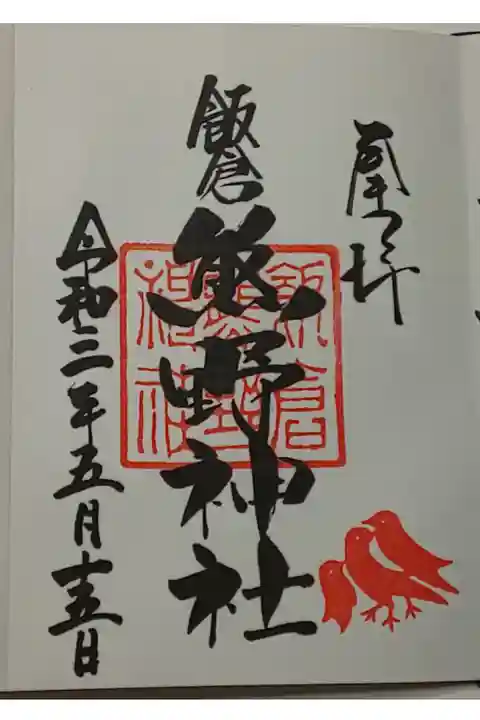 奉拝
飯倉
熊野神社
飯倉
熊野
神社
令和三年五月十五日